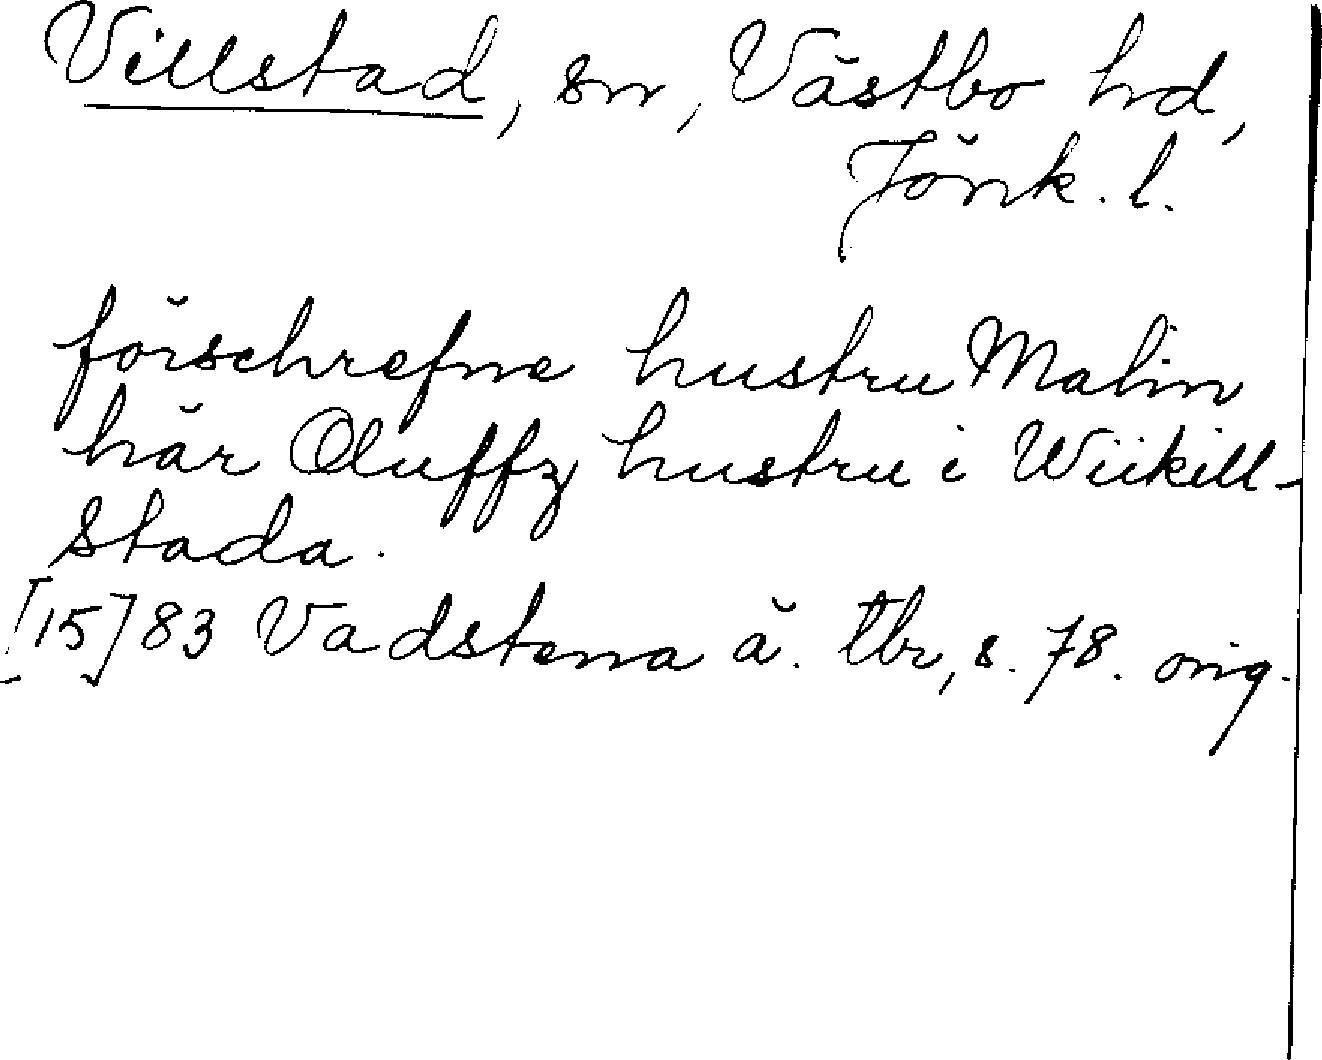 Villstad, sn, Västbo hd,
Jönk. l.
förschrefne hustru Malin
här Oluffz hustru i Wiikill-
stada.
[15]83 Vadstena ä. tbr, s. 78. orig.